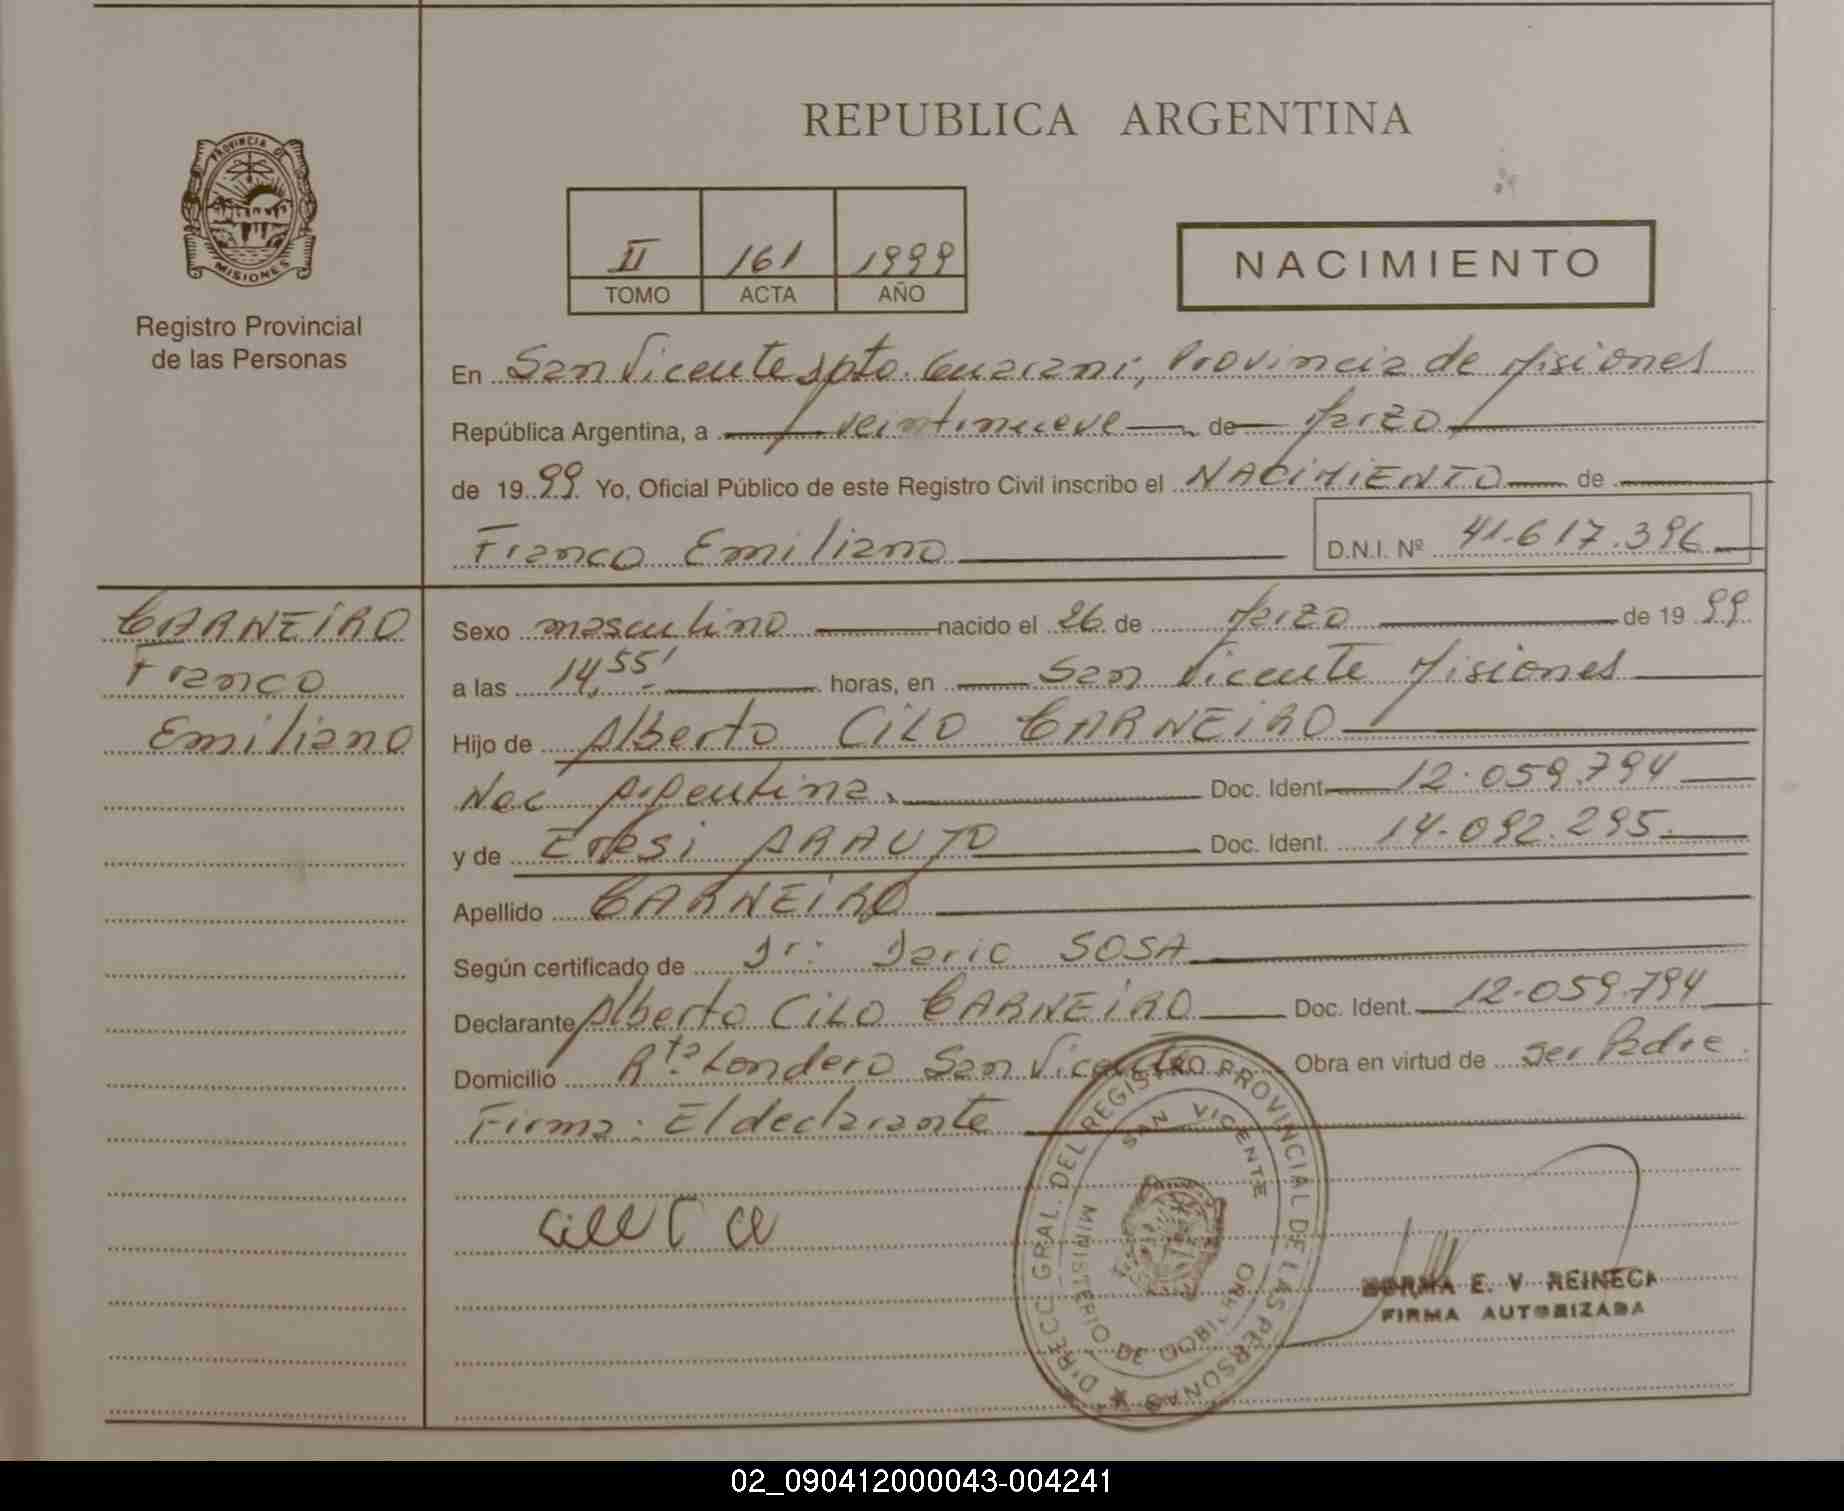 REPUBLICA ARGENTINA
PROVINCIA DE
MISIONES
Registro Provincial
de las Personas
II 161 1999
TOMO ACTA AÑO
NACIMIENTO
En San Vicente Dpto. Guarani, Provincia de Misiones
República Argentina, a veintinueve de Marzo
de 1999 Yo, Oficial Público de este Registro Civil inscribo el NACIMIENTO de
Franco Emiliano D.N.I. Nº 41.617.396
CARNEIRO
Franco
Emiliano
Sexo masculino nacido el 26 de Marzo de 1999
a las 14,55' horas, en San Vicente Misiones
Hijo de Alberto CILO CARNEIRO
Nac Argentina. Doc. Ident. 12.059.794
y de ARAUJO Doc. Ident. 14.092.295
Apellido CARNEIRO
Según certificado de Dr: Dario SOSA
Declarante Alberto CILO CARNEIRO Doc. Ident. 12.059.794
Domicilio Rta. Londero San Vicente Obra en virtud de ser Padre.
Firma: El declarante
DIRECC. GRAL. DEL REGISTRO PROVINCIAL DE LAS PERSONAS
SAN VICENTE
MINISTERIO DE GOBIERNO
NORMA E. V. REINECK
FIRMA AUTORIZADA
02_090412000043-004241